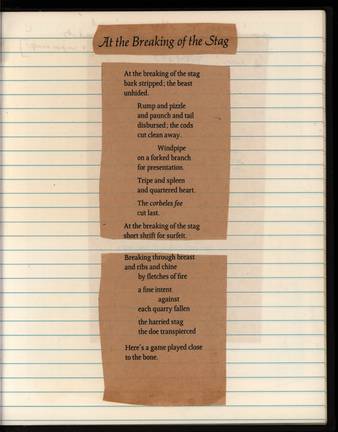 At the Breaking of the Stag
At the breaking of the stag
bark stripped; the beast
unhided.
Rump and pizzle
and paunch and tail
disbursed; the cods
cut clean away.
Windpipe
on a forked branch
for presentation.
Tripe and spleen
and quartered heart.
The corbeles fee
cut last.
At the breaking of the stag
short shrift for surfeit.
Breaking through breast
and ribs and chine
by fletches of fire
a fine intent
against
each quarry fallen
the harried stag
the doe transpierced
Here's a game played close
to the bone.